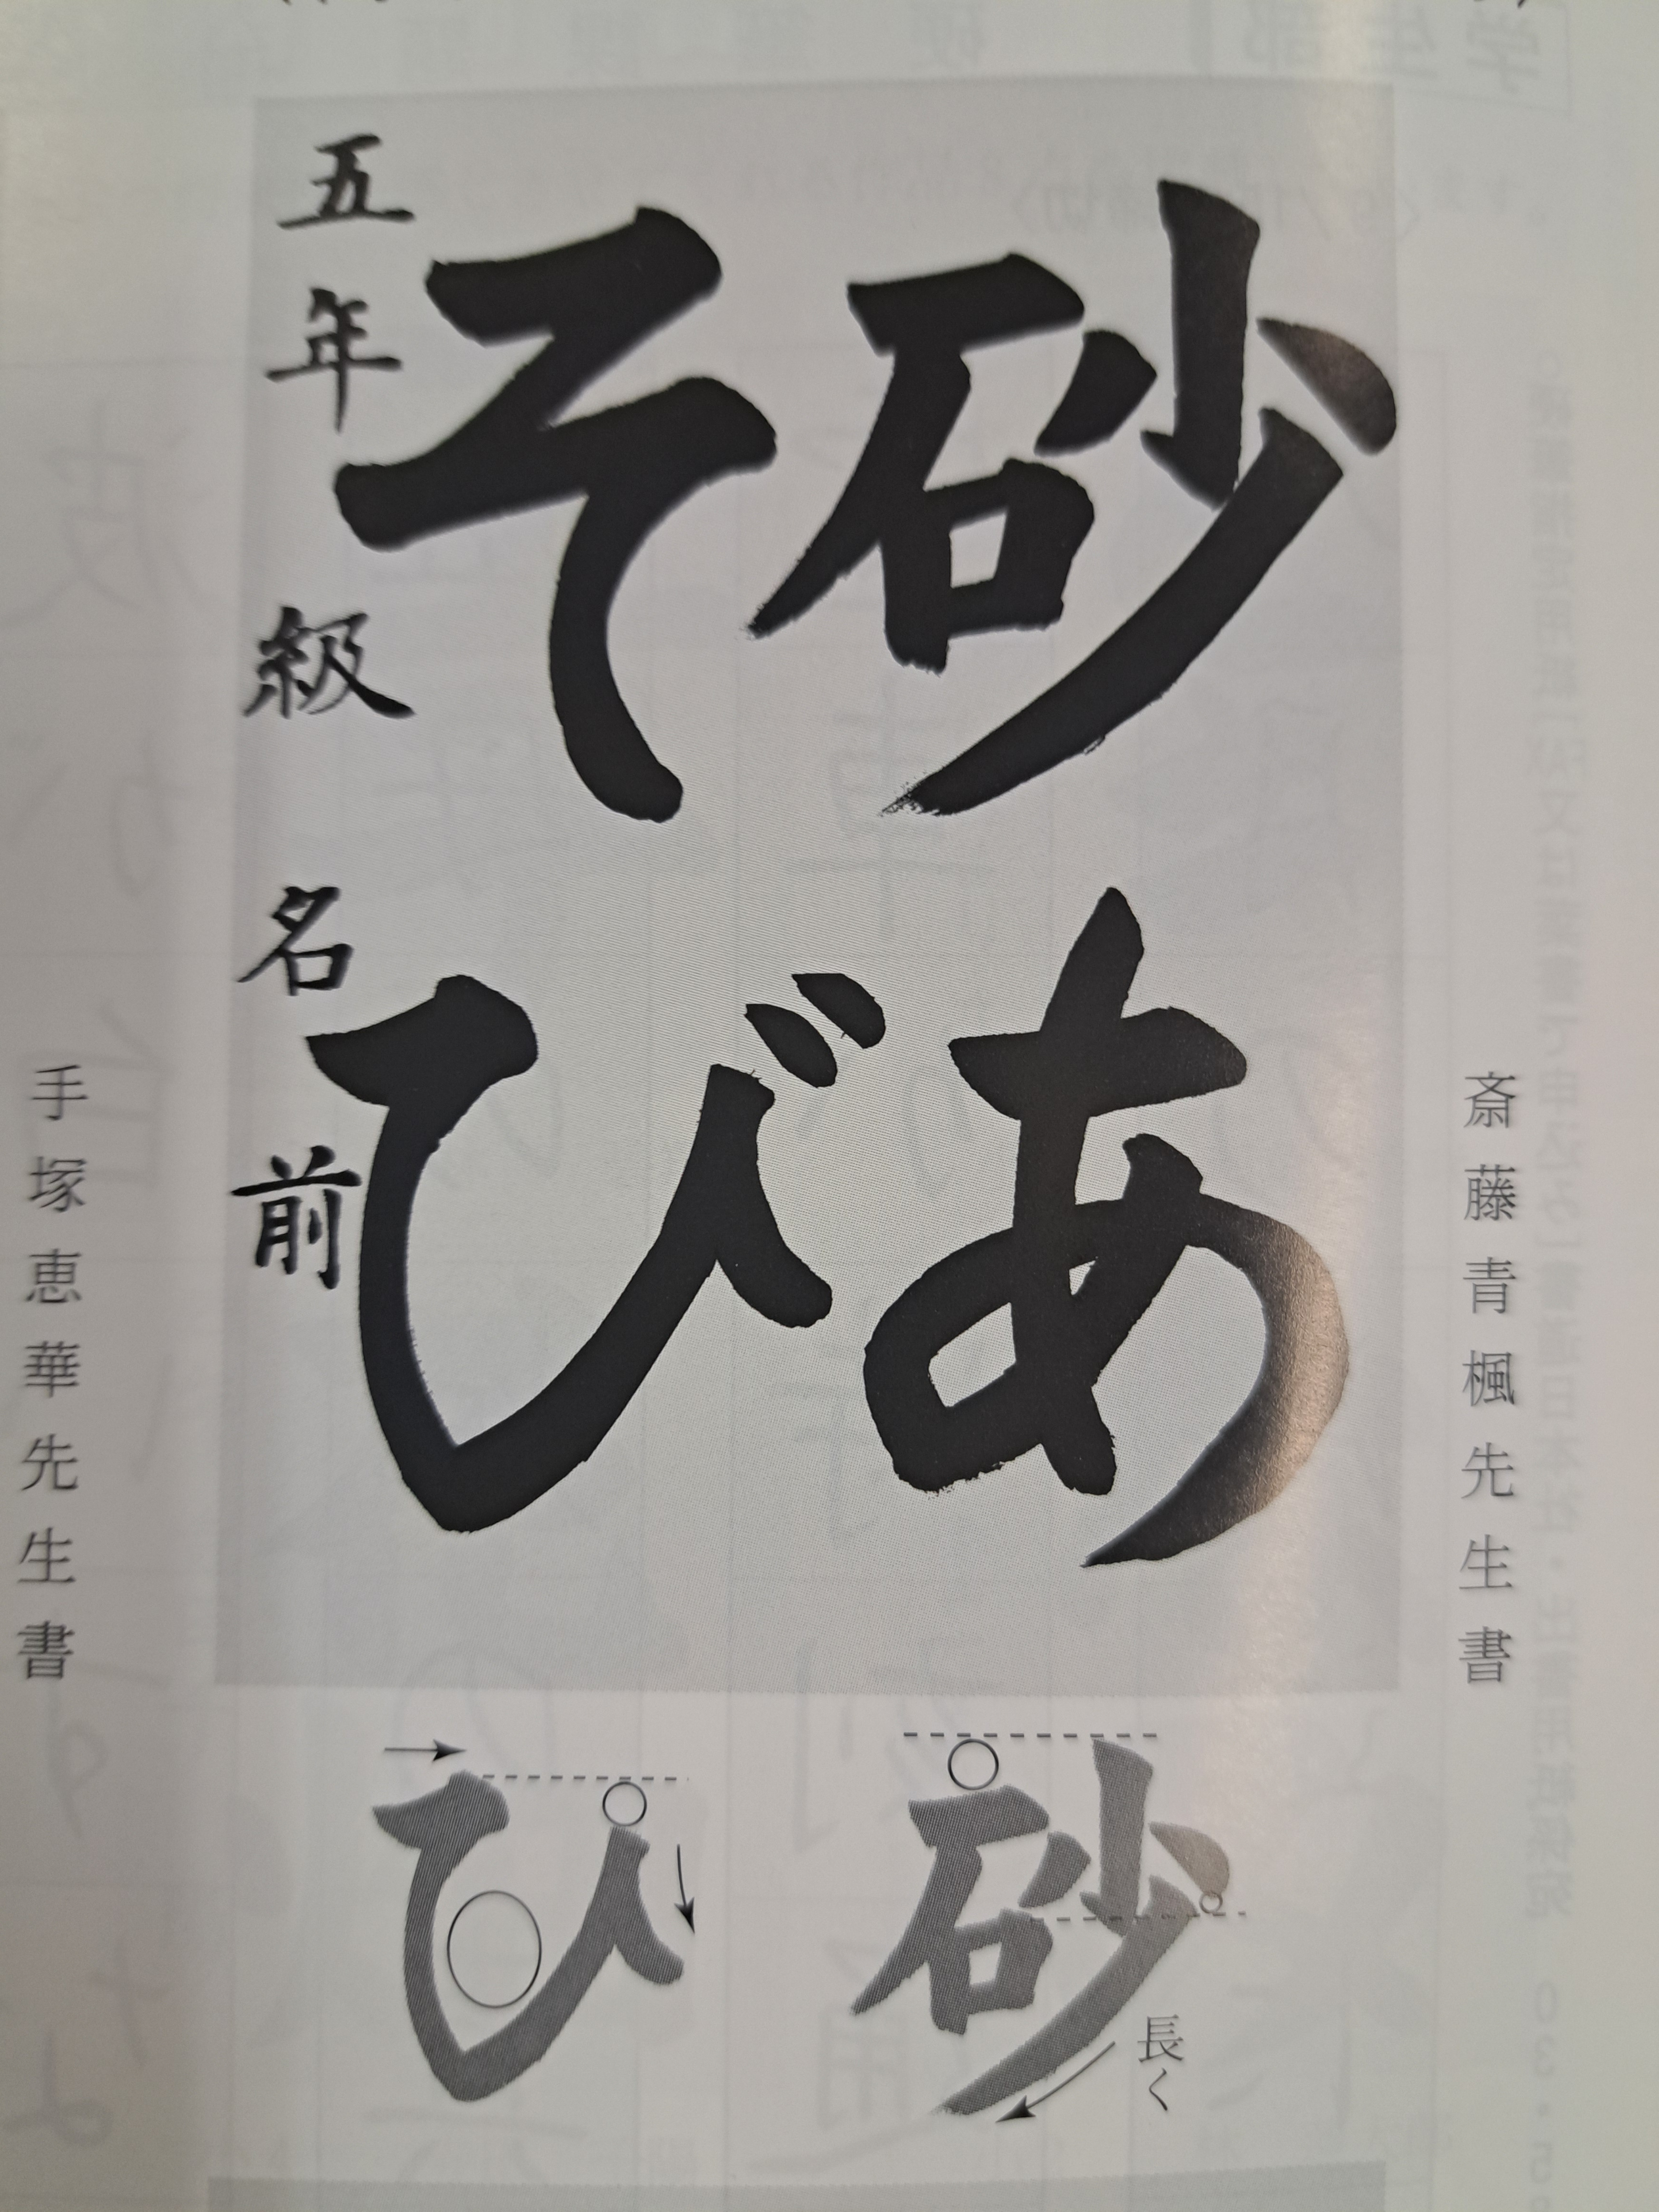 斎藤青楓先生書
砂あ
そび
五年 級 名前
砂
長く
ひ
手塚恵華先生書